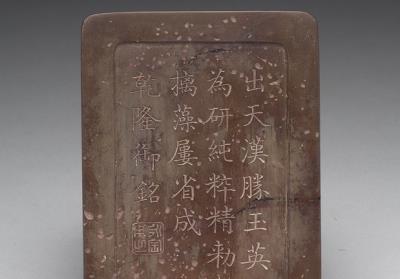 出天漢勝玉英
為研純粹精勅
摛藻屢省成
乾隆御銘